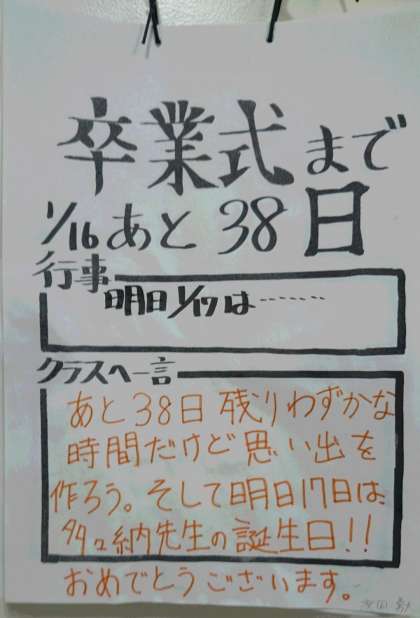 卒業式まで
1/16あと38日
行事
明日1/17は‥‥‥‥
クラスへ一言
あと38日残りわずかな
時間だけど思い出を
作ろう。そして明日17日は
多々納先生の誕生日!!
おめでとうございます。